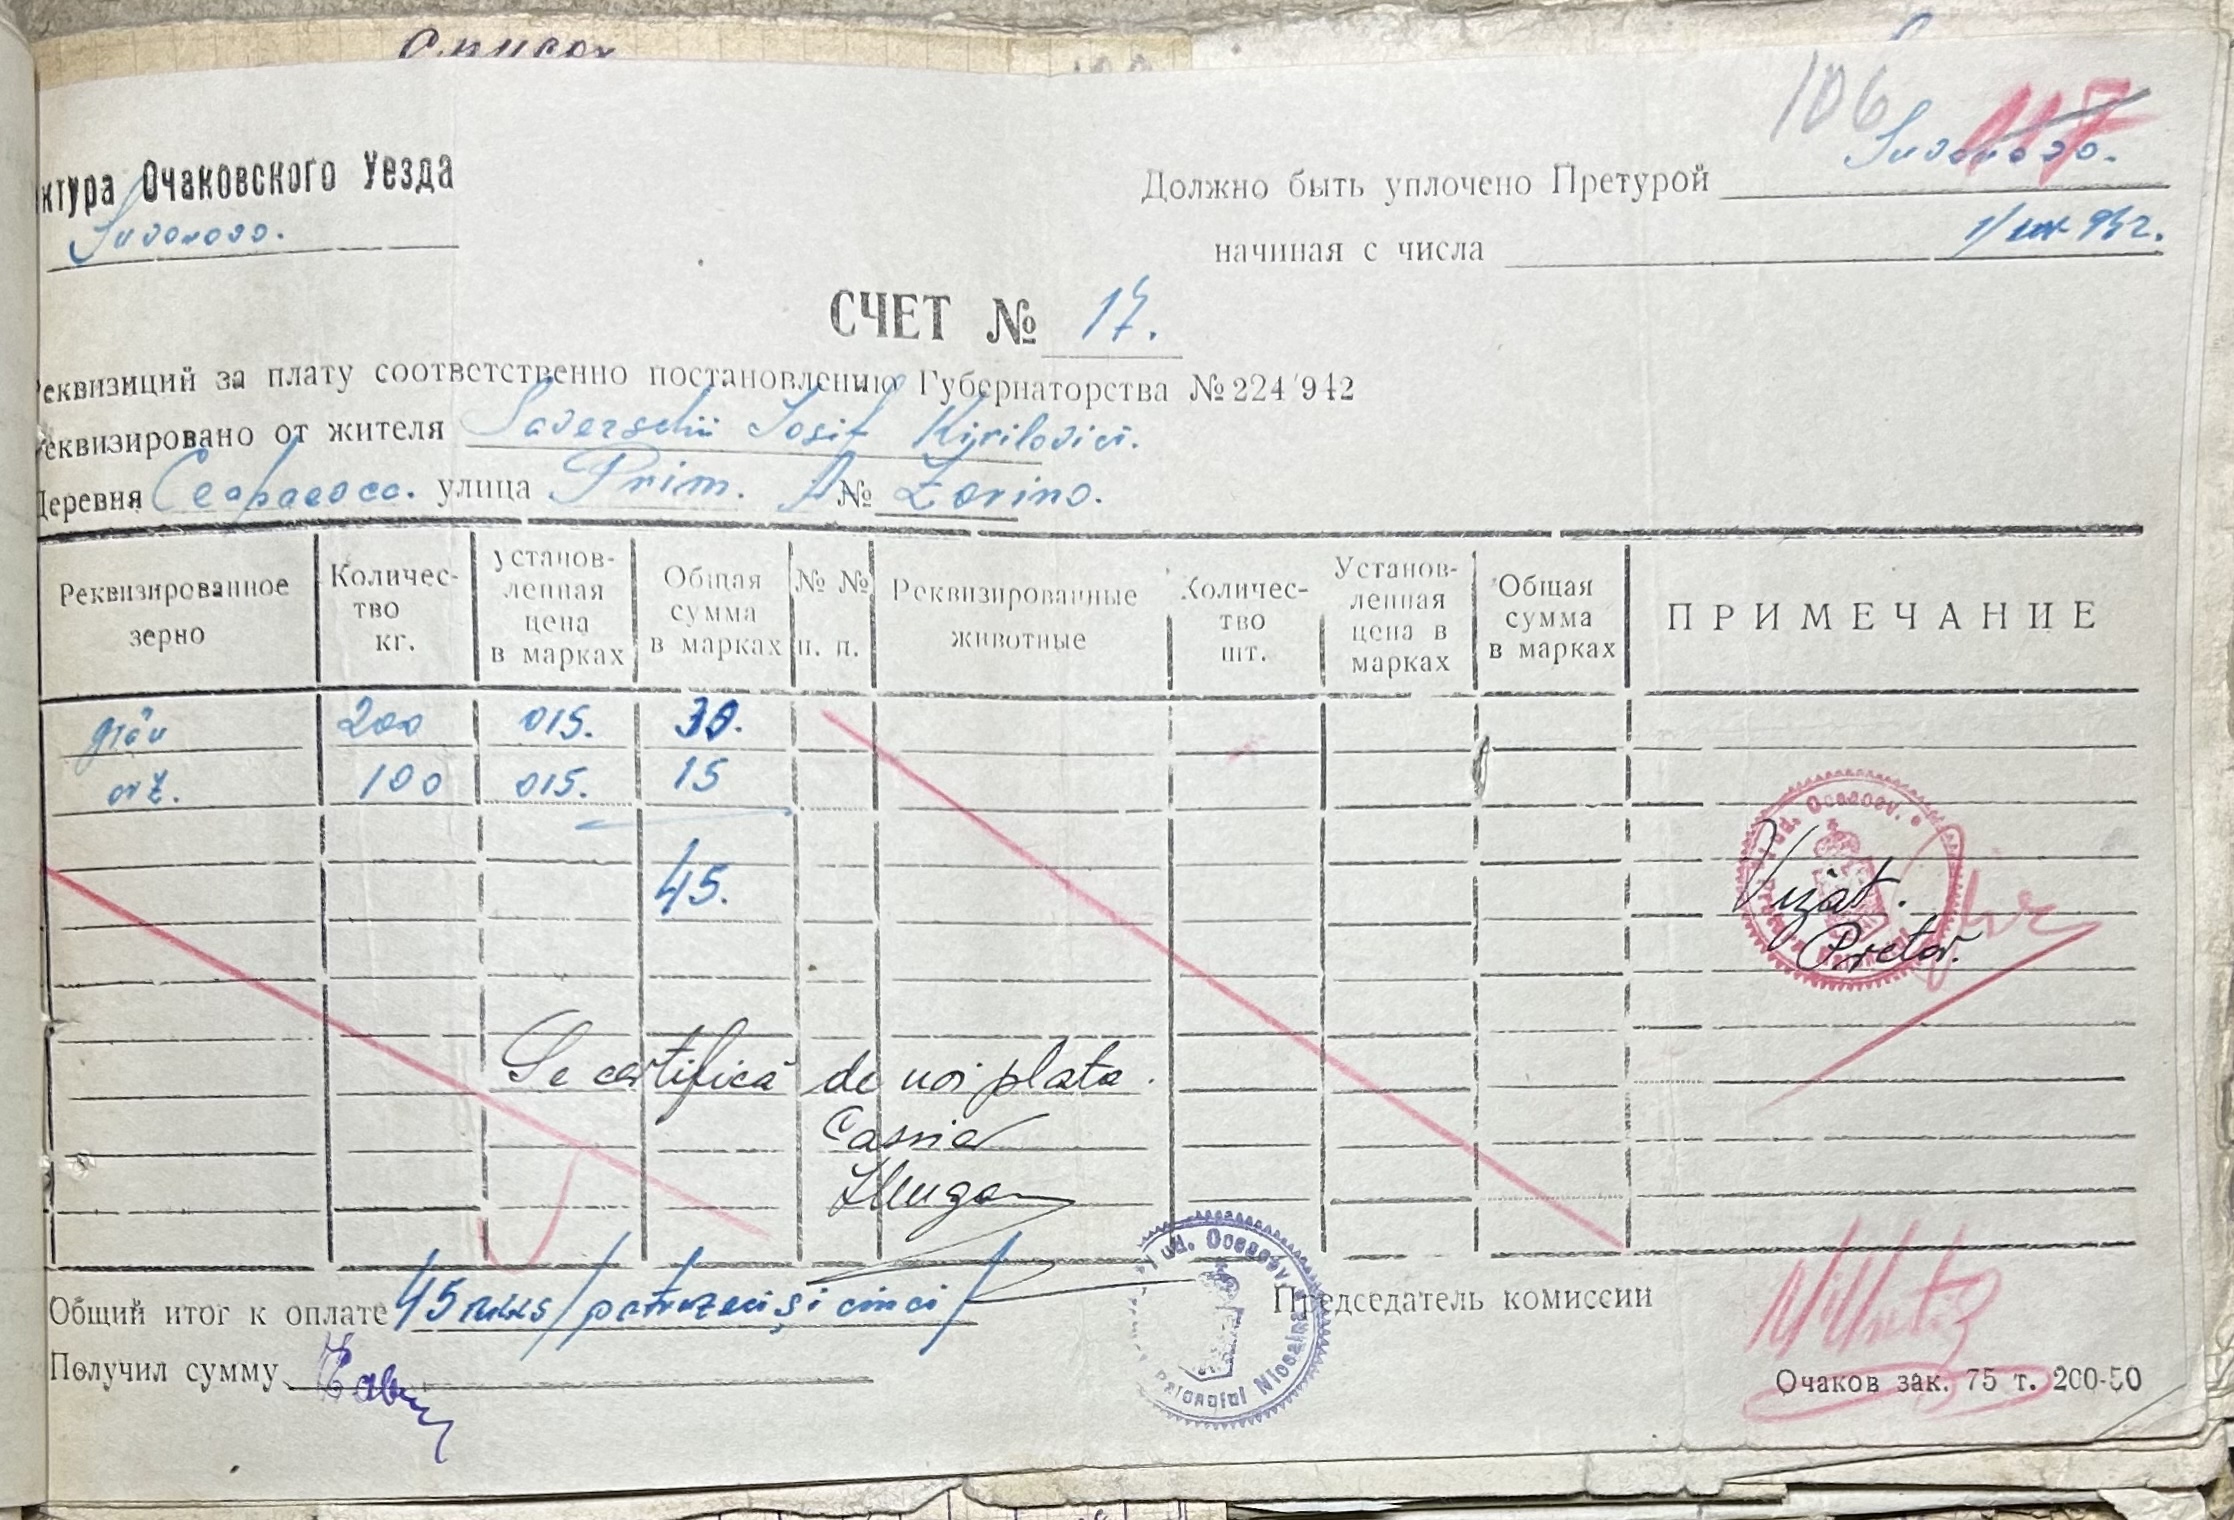 Список
106
117
ктура Очаковского Уезда
Suvorovo.
Должно быть уплочено Претурой Suvorovo.
начиная с числа
СЧЕТ № 17.
еквизиций за плату соответственно постановлению Губернаторства № 224/942
еквизировано от жителя Saverschii Iosif Kirilovici.
Деревня улица Prim. № Zorino.
Реквизированное зерно
Количес-тво кг.
установ-ленная цена в марках
Общая сумма в марках
№ № п. п.
Реквизированные животные
Количес-тво шт.
Установ-ленная цена в марках
Общая сумма в марках
ПРИМЕЧАНИЕ
grâu 200 015. 30.
orz. 100 015. 15
45.
Vizat.
Pretor.
Se certifică de noi plata.
Casier
Общий итог к оплате 45 /patruzeci și cinci/
Председатель комиссии
Получил сумму
Очаков зак. 75 т. 200-50